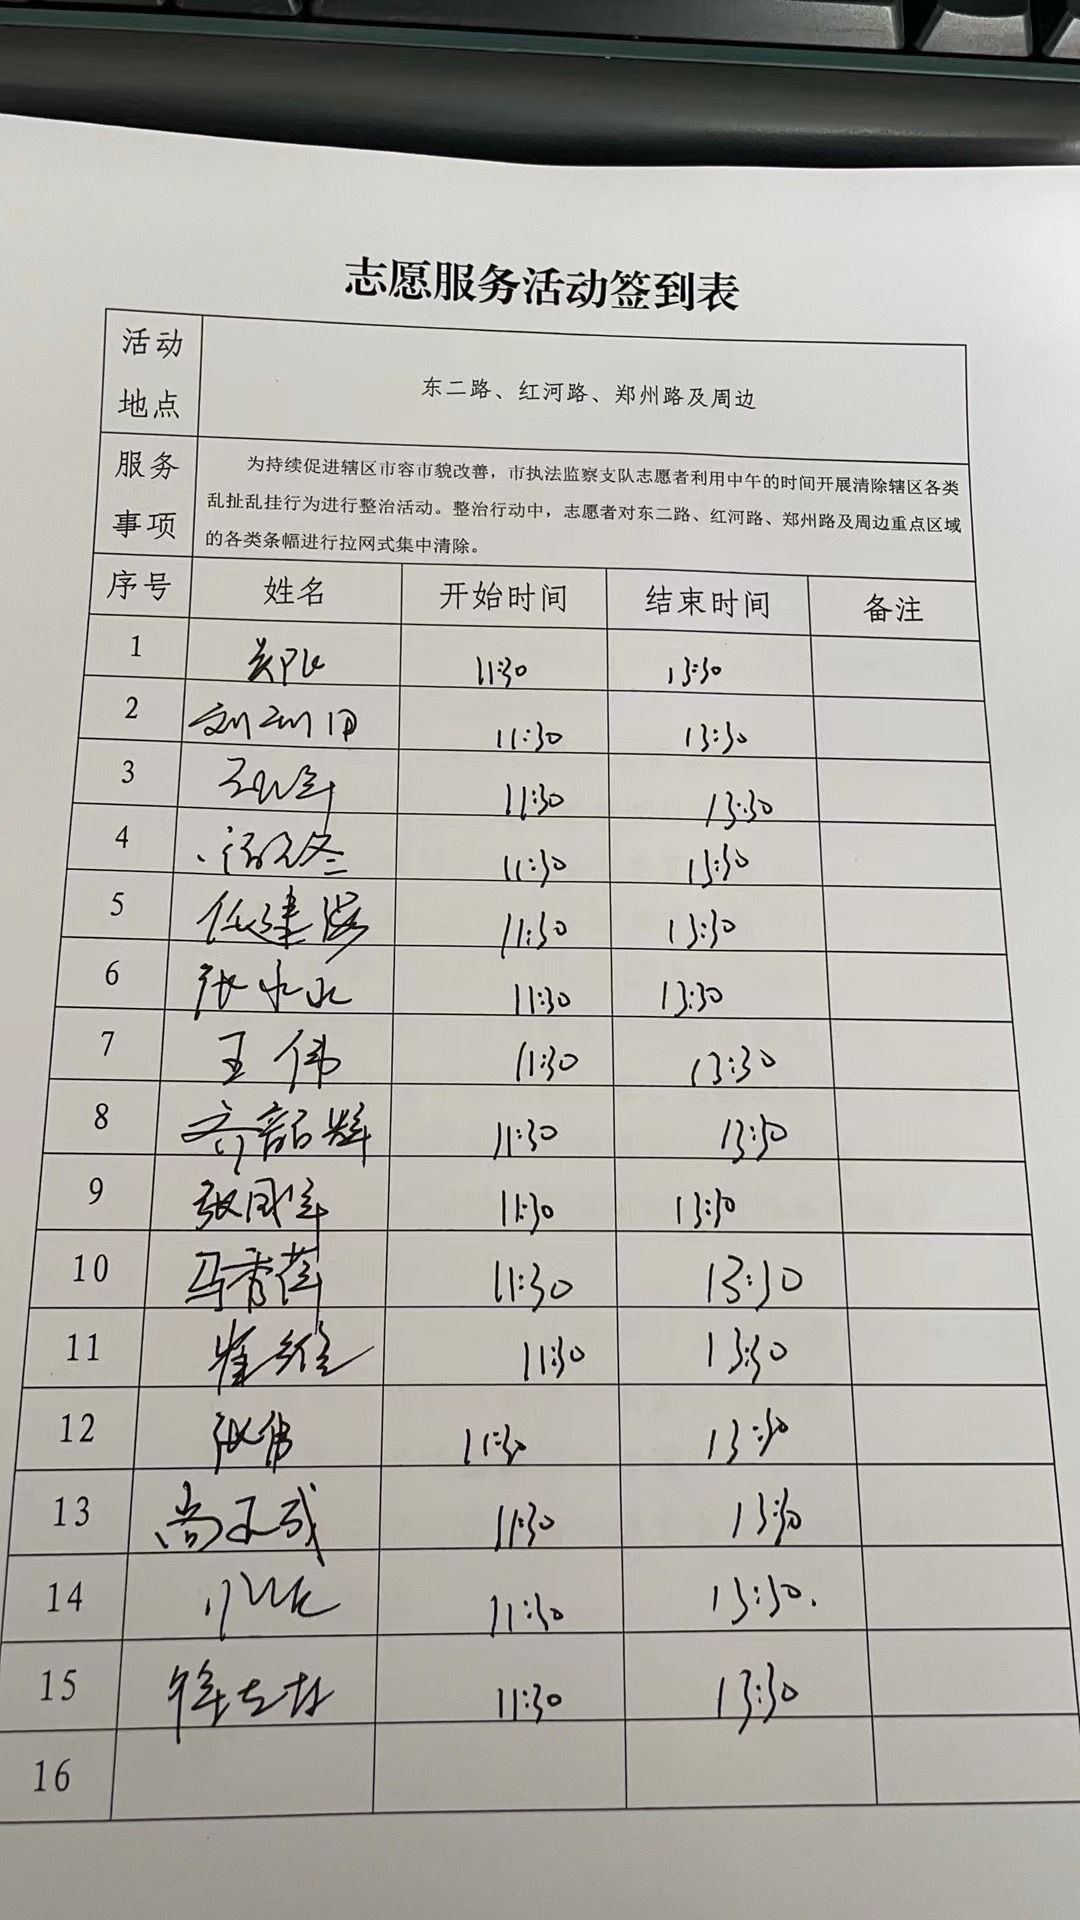 志愿服务活动签到表
活动地点 东二路、红河路、郑州路及周边
服务事项 为持续促进辖区市容市貌改善，市执法监察支队志愿者利用中午的时间开展清除辖区各类
乱扯乱挂行为进行整治活动。整治行动中，志愿者对东二路、红河路、郑州路及周边重点区域
的各类条幅进行拉网式集中清除。
序号 姓名 开始时间 结束时间 备注
1 11:30 13:30
2 11:30 13:30
3 11:30 13:30
4 11:30 13:30
5 任建海 11:30 13:30
6 张水水 11:30 13:30
7 王伟 11:30 13:30
8 齐韶辉 11:30 13:30
9 张国军 11:30 13:30
10 马秀莲 11:30 13:30
11 崔维 11:30 13:30
12 张伟 11:30 13:30
13 尚玉成 11:30 13:30
14 11:30 13:30.
15 11:30 13:30
16